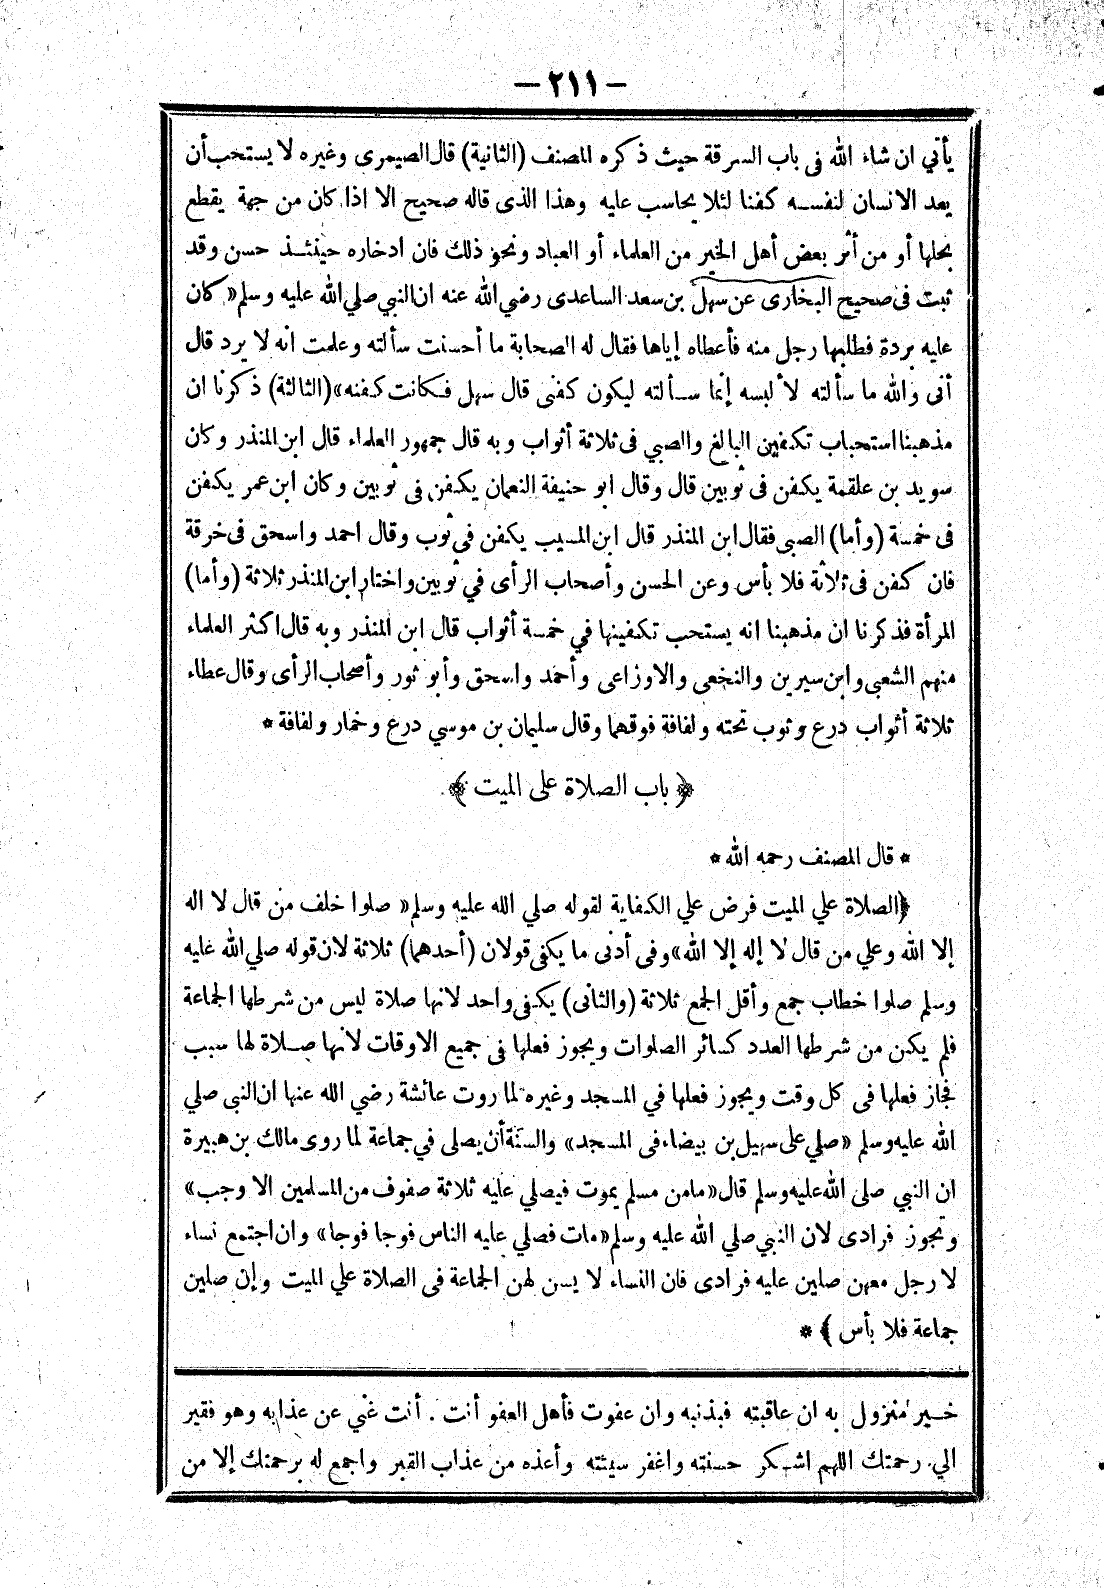 — ٢١١ —
يأتي ان شاء الله فى باب السرقة حيث ذكره المصنف (الثانية) قال الصيمرى وغيره لا يستحب أن
يعد الانسان لنفسه كفنا لئلا يحاسب عليه وهذا الذى قاله صحيح الا اذا كان من جهة يقطع
بحلها أو من أثر بعض أهل الخير من العلماء أو العباد ونحو ذلك فان ادخاره حينئذ حسن وقد
ثبت فى صحيح البخارى عن سهل بن سعد الساعدى رضي الله عنه ان النبي صلي الله عليه وسلم« كان
عليه بردة فطلبها رجل منه فأعطاه إياها فقال له الصحابة ما أحسنت سألته وعلمت انه لا يرد قال
أنى والله ما سألته لألبسه إنما سألته ليكون كفنى قال سهل فكانت كفنه» (الثالثة) ذكرنا ان
مذهبنا استحباب تكفين البالغ والصبي فى ثلاثة أثواب وبه قال جمهور العلماء قال ابن المنذر وكان
سويد بن علقمة يكفن فى ثوبين قال وقال ابو حنيفة النعمان يكفن فى ثوبين وكان ابن عمر يكفن
فى خمسة (وأما) الصبى فقال ابن المنذر قال ابن المسيب يكفن فى ثوب وقال احمد واسحق فى خرقة
فان كفن فى ثلاثة فلا بأس وعن الحسن وأصحاب الرأى في ثوبين واختار ابن المنذر ثلاثة (وأما)
المرأة فذكرنا ان مذهبنا انه يستحب تكفينها في خمسة أثواب قال ابن المنذر وبه قال اكثر العلماء
منهم الشعبى وابن سيرين والنخعى والاوزاعى وأحمد واسحق وأبو ثور وأصحاب الرأى وقال عطاء
ثلاثة أثواب درع وثوب تحته ولفافة فوقهما وقال سليمان بن موسي درع وخمار ولفافة *
﴿ باب الصلاة على الميت ﴾
* قال المصنف رحمه الله *
﴿الصلاة علي الميت فرض علي الكفاية لقوله صلي الله عليه وسلم« صلوا خلف من قال لا اله
إلا الله وعلي من قال لا إله إلا الله» وفى أدنى ما يكفى قولان (أحدهما) ثلاثة لان قوله صلي الله عليه
وسلم صلوا خطاب جمع وأقل الجمع ثلاثة (والثانى) يكفى واحد لانها صلاة ليس من شرطها الجماعة
فلم يكن من شرطها العدد كسائر الصلوات ويجوز فعلها فى جميع الاوقات لانها صلاة لها سبب
فجاز فعلها فى كل وقت ويجوز فعلها في المسجد وغيره لما روت عائشة رضي الله عنها ان النبى صلي
الله عليه وسلم «صلي على سهيل بن بيضاء فى المسجد» والسنة أن يصلى في جماعة لما روى مالك بن هبيرة
ان النبي صلى الله عليه وسلم قال «مامن مسلم يموت فيصلي عليه ثلاثة صفوف من المسلمين الا وجب»
وتجوز فرادى لان النبي صلي الله عليه وسلم«مات فصلي عليه الناس فوجا فوجا» وان اجتمع نساء
لا رجل معهن صلين عليه فرادى فان النساء لا يسن لهن الجماعة فى الصلاة علي الميت وإن صلين
جماعة فلا بأس ﴾ *
خير منزول به ان عاقبته فبذنبه وان عفوت فأهل العفو أنت . أنت غني عن عذابه وهو فقير
الي رحمتك اللهم اشكر حسنته واغفر سيئته وأعذه من عذاب القبر واجمع له برحمتك إلا من